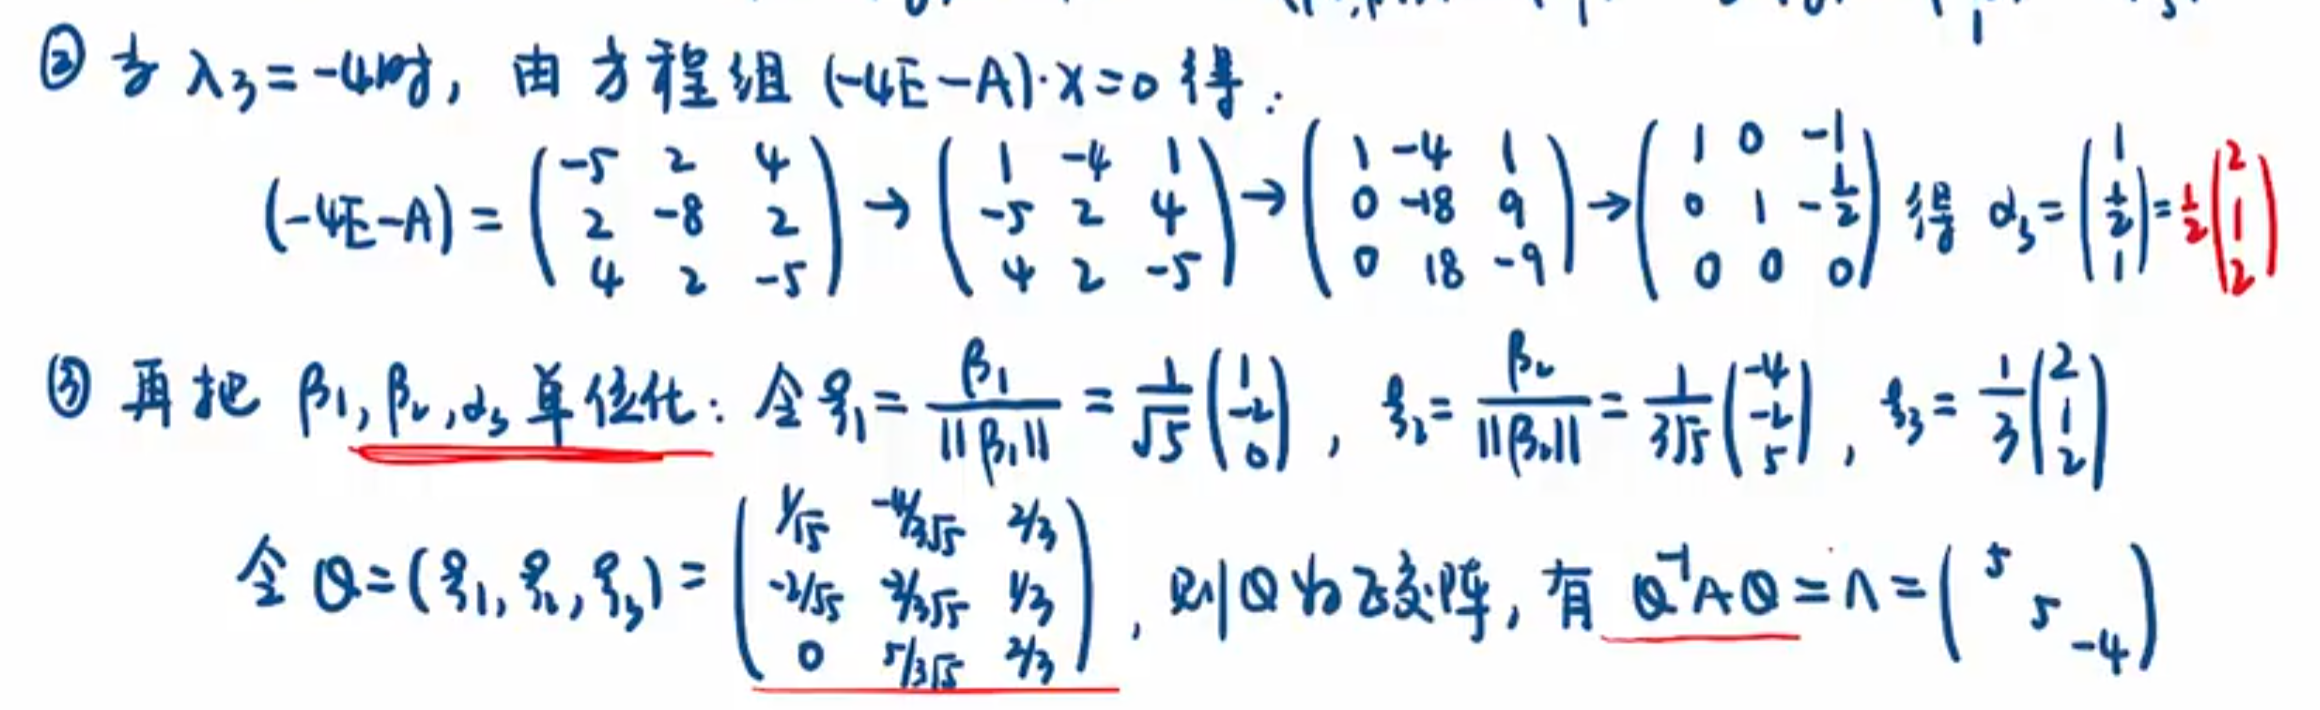 ② 当 λ₃=-4时, 由方程组 (-4E-A)·x=0 得:
(-4E-A) = (-5 2 4; 2 -8 2; 4 2 -5) → (1 -4 1; -5 2 4; 4 2 -5) → (1 -4 1; 0 -18 9; 0 18 -9) → (1 0 -1; 0 1 -1/2; 0 0 0) 得 α₃=(1; 1/2; 1)=1/2(2; 1; 2)
③ 再把 β₁,β₂,α₃单位化: 令ξ₁= β₁/||β₁|| = 1/√5 (1; -2; 0), ξ₂= β₂/||β₂|| = 1/3√5 (-4; -2; 5), ξ₃= 1/3 (2; 1; 2)
令 Q=(ξ₁, ξ₂, ξ₃) = (1/√5 -4/3√5 2/3; -2/√5 -2/3√5 1/3; 0 5/3√5 2/3), 则Q为正交阵, 有 Q⁻¹AQ=Λ=(5 5 -4)